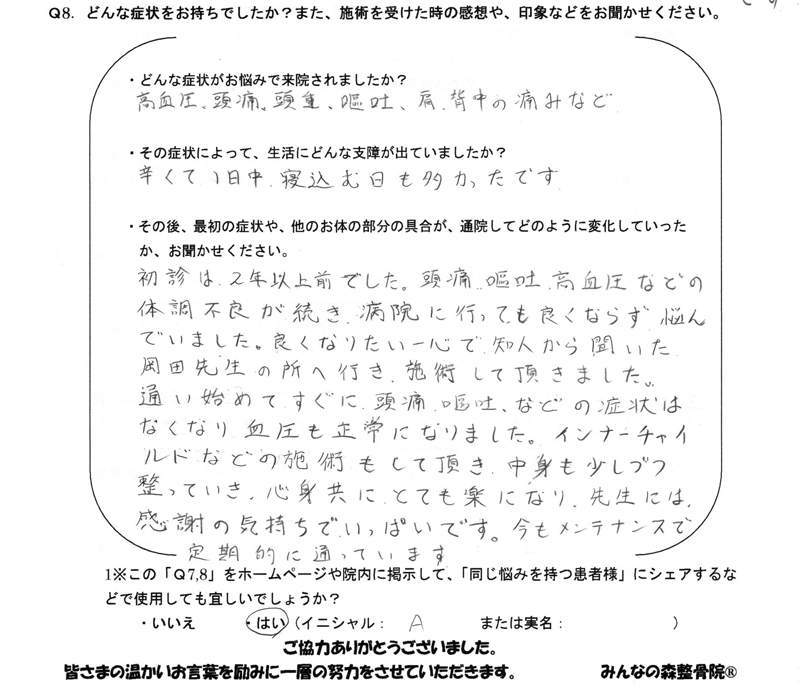 Q8. どんな症状をお持ちでしたか？また、施術を受けた時の感想や、印象などをお聞かせください。
・どんな症状がお悩みで来院されましたか？
高血圧、頭痛、頭重、嘔吐、肩、背中の痛みなど
・その症状によって、生活にどんな支障が出ていましたか？
辛くて、1日中、寝込む日も多かったです
・その後、最初の症状や、他のお体の部分の具合が、通院してどのように変化していった
か、お聞かせください。
初診は、2年以上前でした。頭痛、嘔吐、高血圧などの
体調不良が続き、病院に行っても良くならず 悩ん
でいました。良くなりたい一心で、知人から聞いた
岡田先生の所へ行き、施術して頂きました。
通い始めてすぐに、頭痛、嘔吐、などの症状は
なくなり、血圧も正常になりました。インナーチャイ
ルドなどの施術もして頂き、中身も少しづつ
整っていき、心身共に、とても楽になり、先生には、
感謝の気持ちでいっぱいです。今もメンテナンスで
定期的に通っています
1※この「Q7,8」をホームページや院内に掲示して、「同じ悩みを持つ患者様」にシェアするな
どで使用しても宜しいでしょうか？
・いいえ ・はい（イニシャル： A または実名： ）
ご協力ありがとうございました。
皆さまの温かいお言葉を励みに一層の努力をさせていただきます。 みんなの森整骨院®